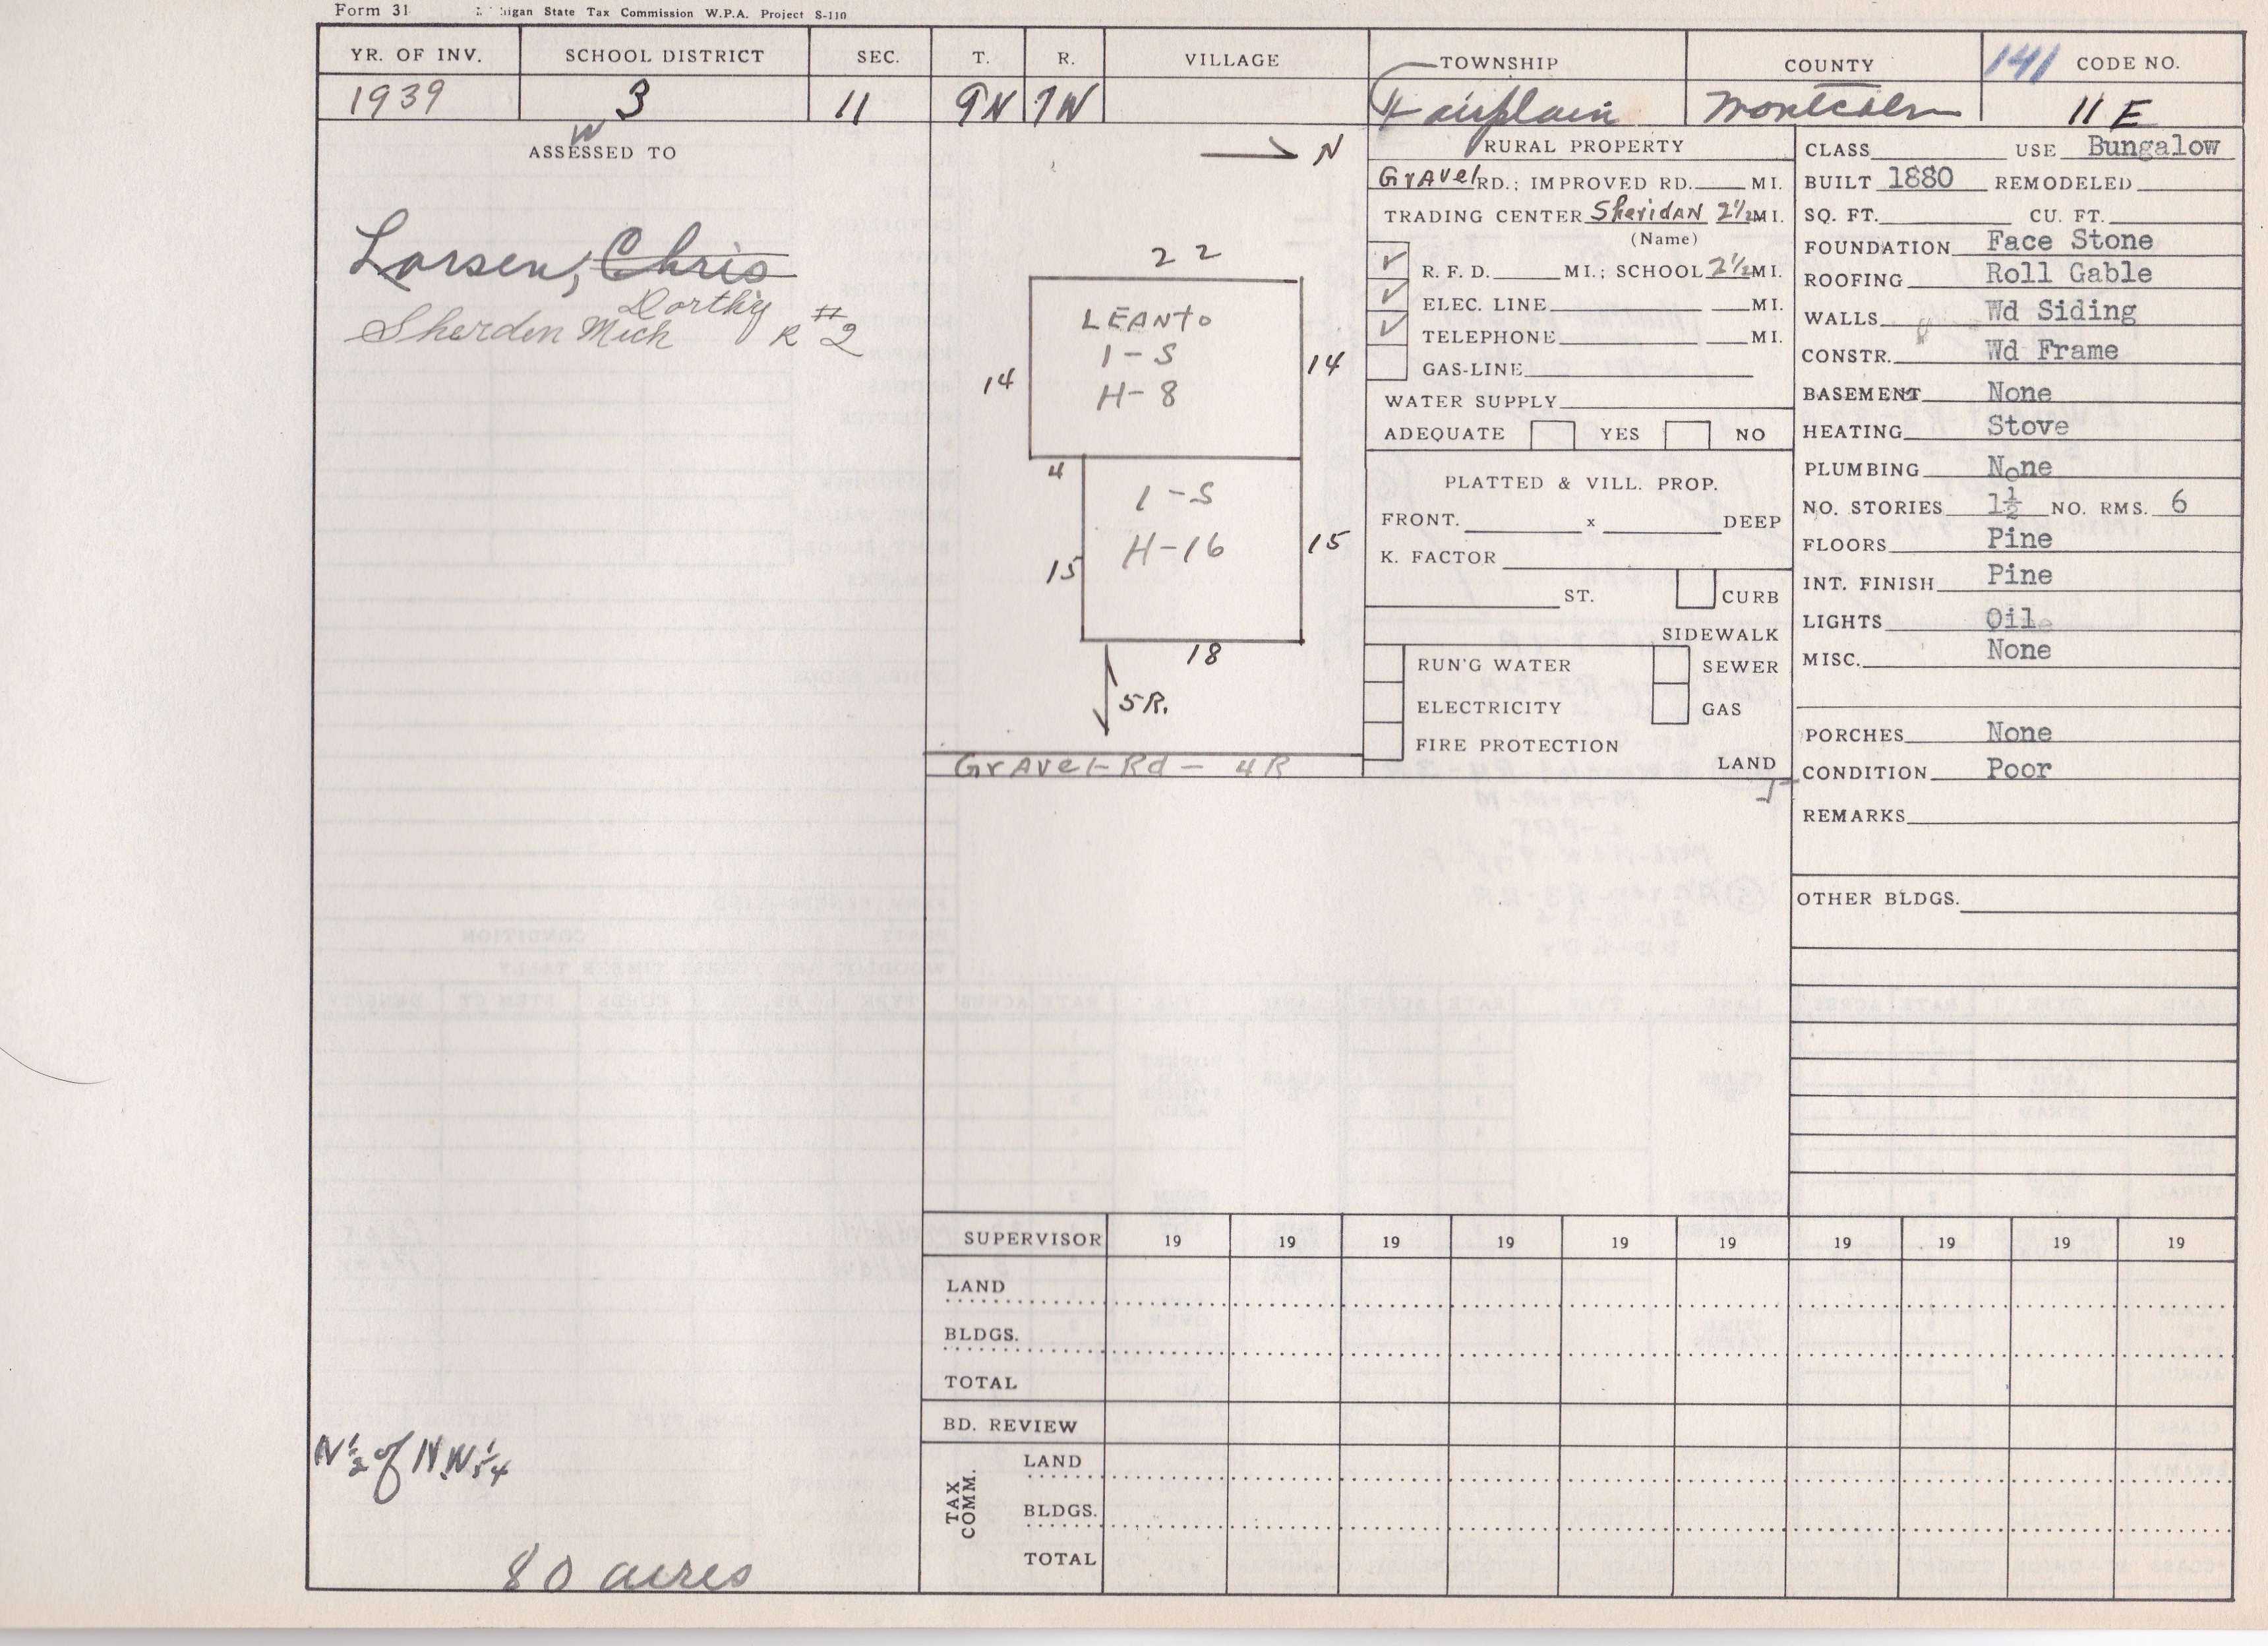 Form 31 Michigan State Tax Commission W.P.A. Project S-110
YR. OF INV. SCHOOL DISTRICT SEC. T. R. VILLAGE TOWNSHIP COUNTY 141 CODE NO.
1939 3 11 9N 7W Fairplain Montcalm 11 E
W
ASSESSED TO
Larsen, Chris
Dorthy
Sherden Mich R #2
N 1/2 of N.W 1/4
80 acres
N
22
LEANto
1-S
H-8
14
14
4
1-S
H-16
15
15
18
5R.
Gravel-Rd - 4R
RURAL PROPERTY
Gravel RD.; IMPROVED RD. MI.
TRADING CENTER Sheridan 2 1/2 MI.
(Name)
✓ R. F. D. MI.; SCHOOL 2 1/2 MI.
✓ ELEC. LINE MI.
✓ TELEPHONE MI.
GAS-LINE
WATER SUPPLY
ADEQUATE YES NO
PLATTED & VILL. PROP.
FRONT. x DEEP
K. FACTOR
ST. CURB
SIDEWALK
RUN'G WATER SEWER
ELECTRICITY GAS
FIRE PROTECTION
LAND
CLASS USE Bungalow
BUILT 1880 REMODELED
SQ. FT. CU. FT.
FOUNDATION Face Stone
ROOFING Roll Gable
WALLS Wd Siding
CONSTR. Wd Frame
BASEMENT None
HEATING Stove
PLUMBING None
NO. STORIES 1½ NO. RMS. 6
FLOORS Pine
INT. FINISH Pine
LIGHTS Oil
MISC. None
PORCHES None
CONDITION Poor
REMARKS
OTHER BLDGS.
SUPERVISOR 19 19 19 19 19 19 19 19 19 19
LAND
BLDGS.
TOTAL
BD. REVIEW
TAX COMM.
LAND
BLDGS.
TOTAL